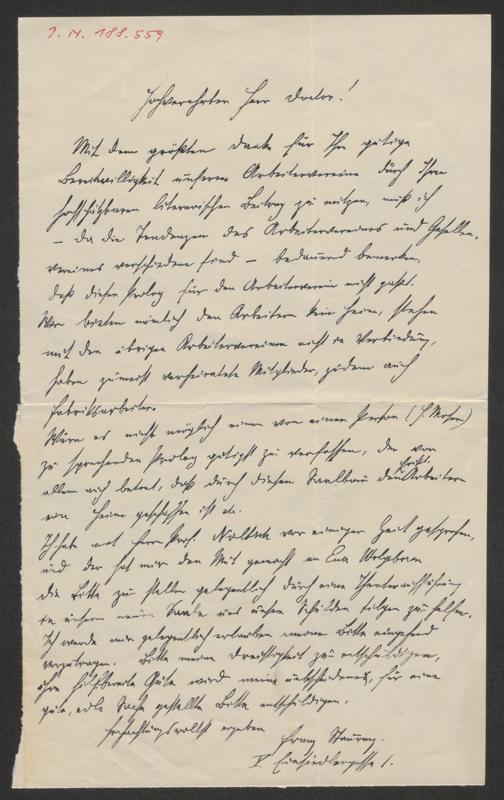 I. N. 188.559
Hochverehrter Herr Doctor!
Mit dem größten Danke für Ihre gütige
Bereitwilligkeit unserem Arbeitervereine durch Ihren
hochschätzbaren literarischen Beitrag zu nützen, muß ich
– da die Tendenzen des Arbeitervereines und Gesellen-
vereines verschiedene sind – bedauernd bemerken,
daß dieser Prolog für den Arbeiterverein nicht paßt.
Wir bieten nämlich den Arbeitern kein Heim, stehen
mit den übrigen Arbeitervereinen nicht in Verbindung,
haben zumeist verheiratete Mitglieder, zudem auch
Fabriksarbeiter.
Wäre es nicht möglich einen von einer Person (H. Moser)
zu sprechenden Prolog gütigst zu verfassen, der vor
allem auch betont, daß durch diesen Saalbau den christl. Arbeitern
ein Heim geschaffen ist etc.
Ich habe mit Herrn Prof. Noltsch vor einiger Zeit gesprochen,
und der hat mir den Mut gemacht an Euer Wolgeboren
die Bitte zu stellen gelegentlich durch eine Theateraufführung
in unserm neuen Saale uns unsere Schulden tilgen zu helfen.
Ich werde mir gelegentlich erlauben meine Bitte eingehend
vorzutragen. Bitte meine Dreistigkeit zu entschuldigen,
Ihre hilfbereite Güte wird meine, für eine
gute, edle Sache gestellte Bitte entschuldigen.
Hochachtungsvollst ergeben
Franz
V. Einsiedlergasse 1.